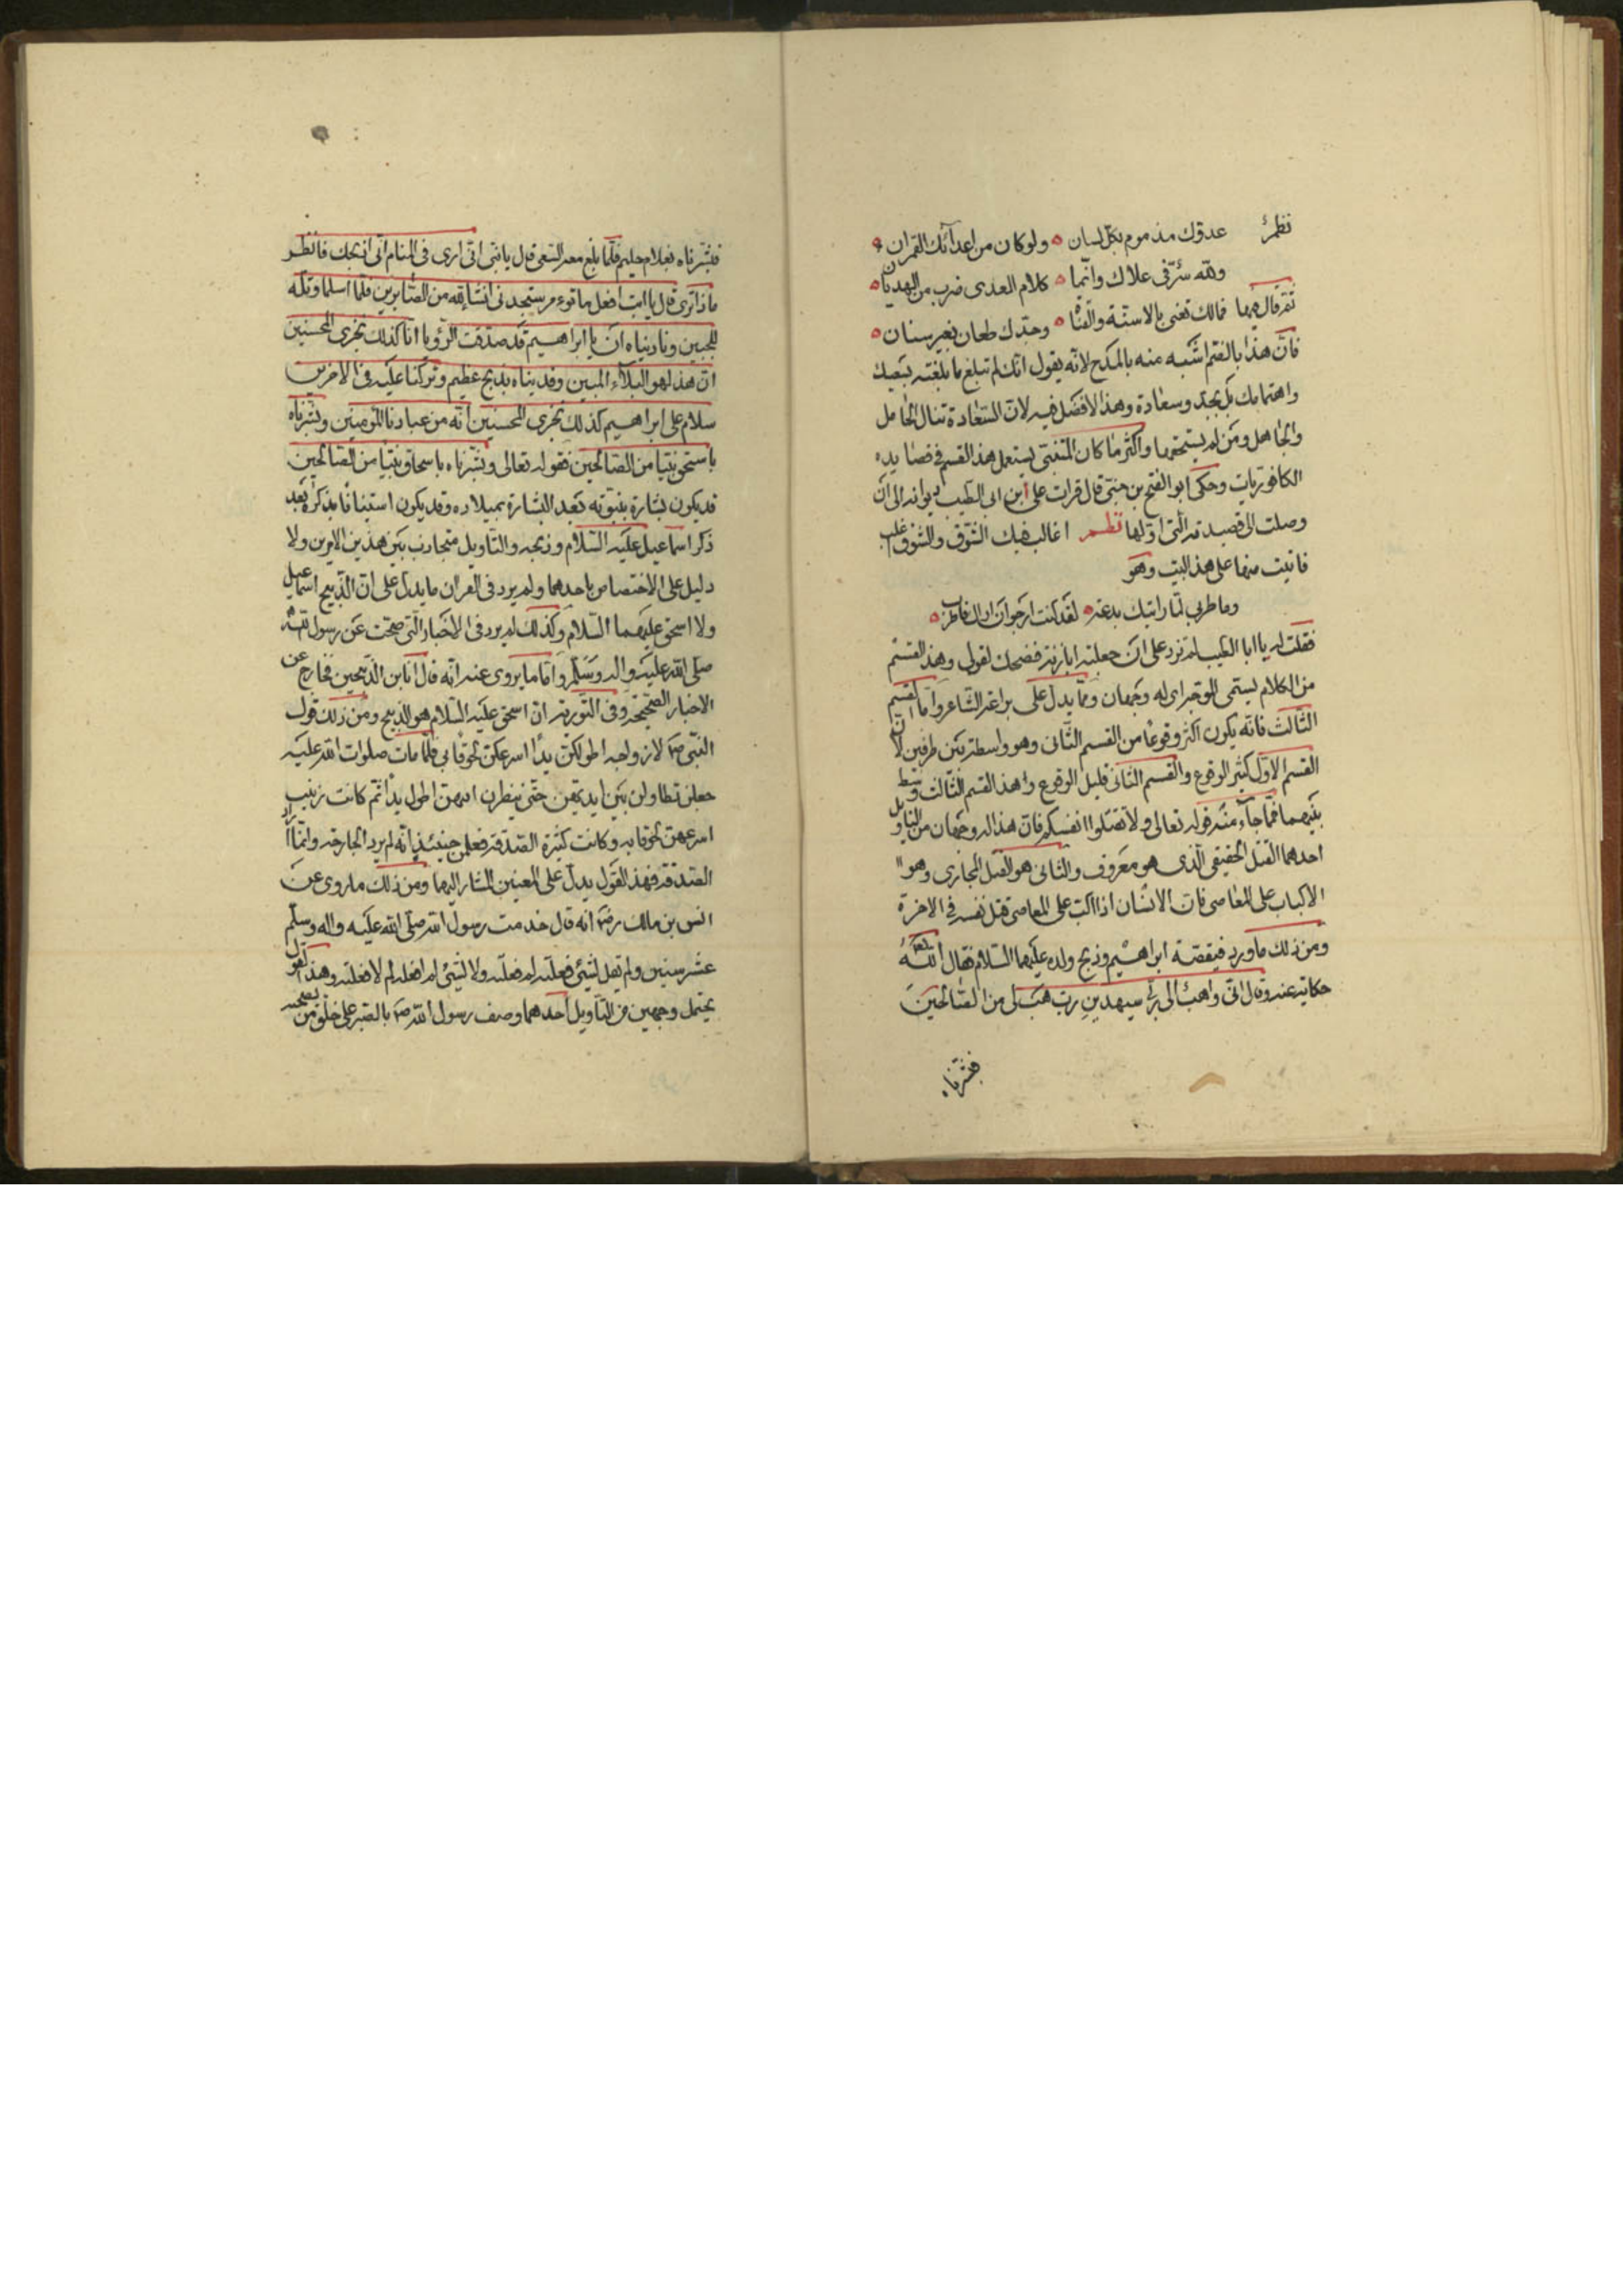 نظم عدوّك مذموم بكلّ لسان ه ولو كان من اعدآئك القمران ه
ولله سرّ فى علاك وانّما ه كلام العدى ضرب من الهذيان ه
ثمّ قال فيها فمالك تعنى بالاسنّة والقنا ه وجدّك طعان بغير سنان ه
فانّ هذا بالذم اشبه منه بالمدح لانّه يقول انّك لم تبلغ ما بلغته بسعيك
واهتمامك بل بجدّ وسعادة وهذا لافضل فيه لانّ السّعادة تنال الخامل
والجاهل ومن لم يستحقها واكثر ما كان المتنبّى يستعمل هذا القسم فى قصايده
الكافوريات وحكى ابو الفتح بن جنّى قال قرات على ابن ابى الطيّب ديوانه الى ان
وصلت الى قصيدته الّتى اوّلها نظم اغالب فيك الشّوق والشّوق اغلب
فاتيت منها على هذا البيت وهو
وما طربى لمّا رايتك بدعة ه لقد كنت ارجو ان اراك فاطرب ه
فقلت له يا ابا الطيّب لم تزد على ان جعلته ابا زنة فضحك لقولى وهذا القسم
من الكلام يسمّى الموجّه اى له وجهان وممّا يدلّ على براعة الشّاعر وامّا القسم
الثّالث فانّه يكون اكثر وقوعا من القسم الثّانى وهو واسطة بين طرفين لانّ
القسم الاوّل كثير الوقوع والقسم الثّانى قليل الوقوع وهذا القسم الثّالث وسط
بينهما فممّا جآء منه قوله تعالى ولا تقتلوا انفسكم فانّ هذا له وجهان من التاويل
احدهما القتل الحقيقى الّذى هو معروف والثانى هو القتل المجازى وهو
الاكباب على المعاصى فانّ الانسان اذا اكبّ على المعاصى قتل نفسه فى الاخرة
ومن ذلك ما ورد فيقصّة ابراهيم وذبح ولده عليهما السّلام فقال اللّه تعالى
حكاية عنه وقال انّى ذاهب الى ربّى سيهدين ربّ هب لى من الصّالحين
فبشّرناه
فبشّرناه بغلام حليم فلمّا بلغ معه السّعى قال يا بنىّ انّى ارى فى المنام انّى اذبحك فانظر
ماذا ترى قال يا ابت افعل ما تؤمر ستجدنى انشآء الله من الصّابرين فلمّا اسلما وتلّه
للجبين وناديناه ان يا ابراهيم قد صدّقت الرّؤيا انّا كذلك نجزى المحسنين
انّ هذا لهو البلآء المبين وفديناه بذبح عظيم وتركنا عليه فى الاخرين
سلام على ابراهيم كذلك نجزى المحسنين انّه من عبادنا المؤمنين وبشّرناه
باسحق نبيّا من الصّالحين فقوله تعالى وبشّرناه باسحاق نبيّا من الصّالحين
قد يكون بشارة بنبوّته بعد البشارة بميلاده وقد يكون استينافا بذكره بعد
ذكر اسماعيل عليه السّلام وذبحه والتاويل متجاذب بين هذين الامرين ولا
دليل على الاختصاص باحدهما ولم يرد فى القران ما يدلّ على انّ الذّبيح اسماعيل
ولا اسحق عليهما السّلام وكذلك لم يرد فى الاخبار الّتى صحّت عن رسول اللّه
صلّى الله عليه واله وسلّم وامّا ما يروى عنه انّه قال انا ابن الذّبيحين فخارج عن
الاخبار الصّحيحة وفى التّورية انّ اسحق عليه السّلام هو الذّبيح ومن ذلك قول
النّبىّ صم لازواجه اطولكنّ يدا اسرعكنّ لحوقا بى فلمّا مات صلوات الله عليه
جعلن تطاولن بين ايديهنّ حتّى ينظرن ايتهنّ اطول يدا ثمّ كانت زينب
اسرعهنّ لحوقا به وكانت كثيرة الصّدقة فعلمن حينئذ انّه لم يرد الجارحة وانّما اراد
الصّدقة فهذا القول يدلّ على المعنيين المشار اليهما ومن ذلك ما روى عن
انس بن مالك رضه انّه قال خدمت رسول الله صلّى الله عليه واله وسلّم
عشر سنين ولم يقل لشيئ فعلته لم فعلته ولا لشيئ لم افعله لم لا فعلته وهذا القول
يحتمل وجهين من التأويل احدهما وصف رسول الله صم بالصّبر على خلق من يصحبه